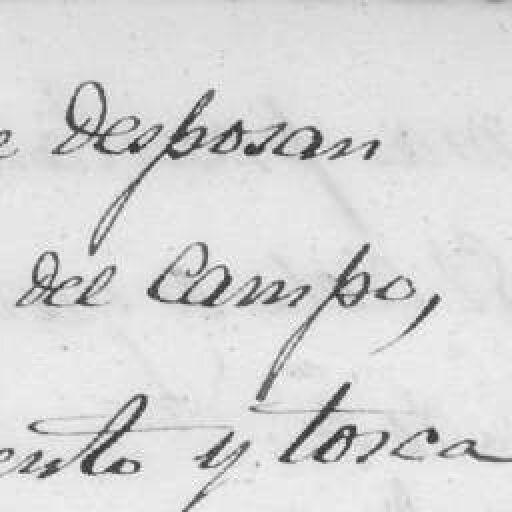 e desposan
del campo,
ento y tosca